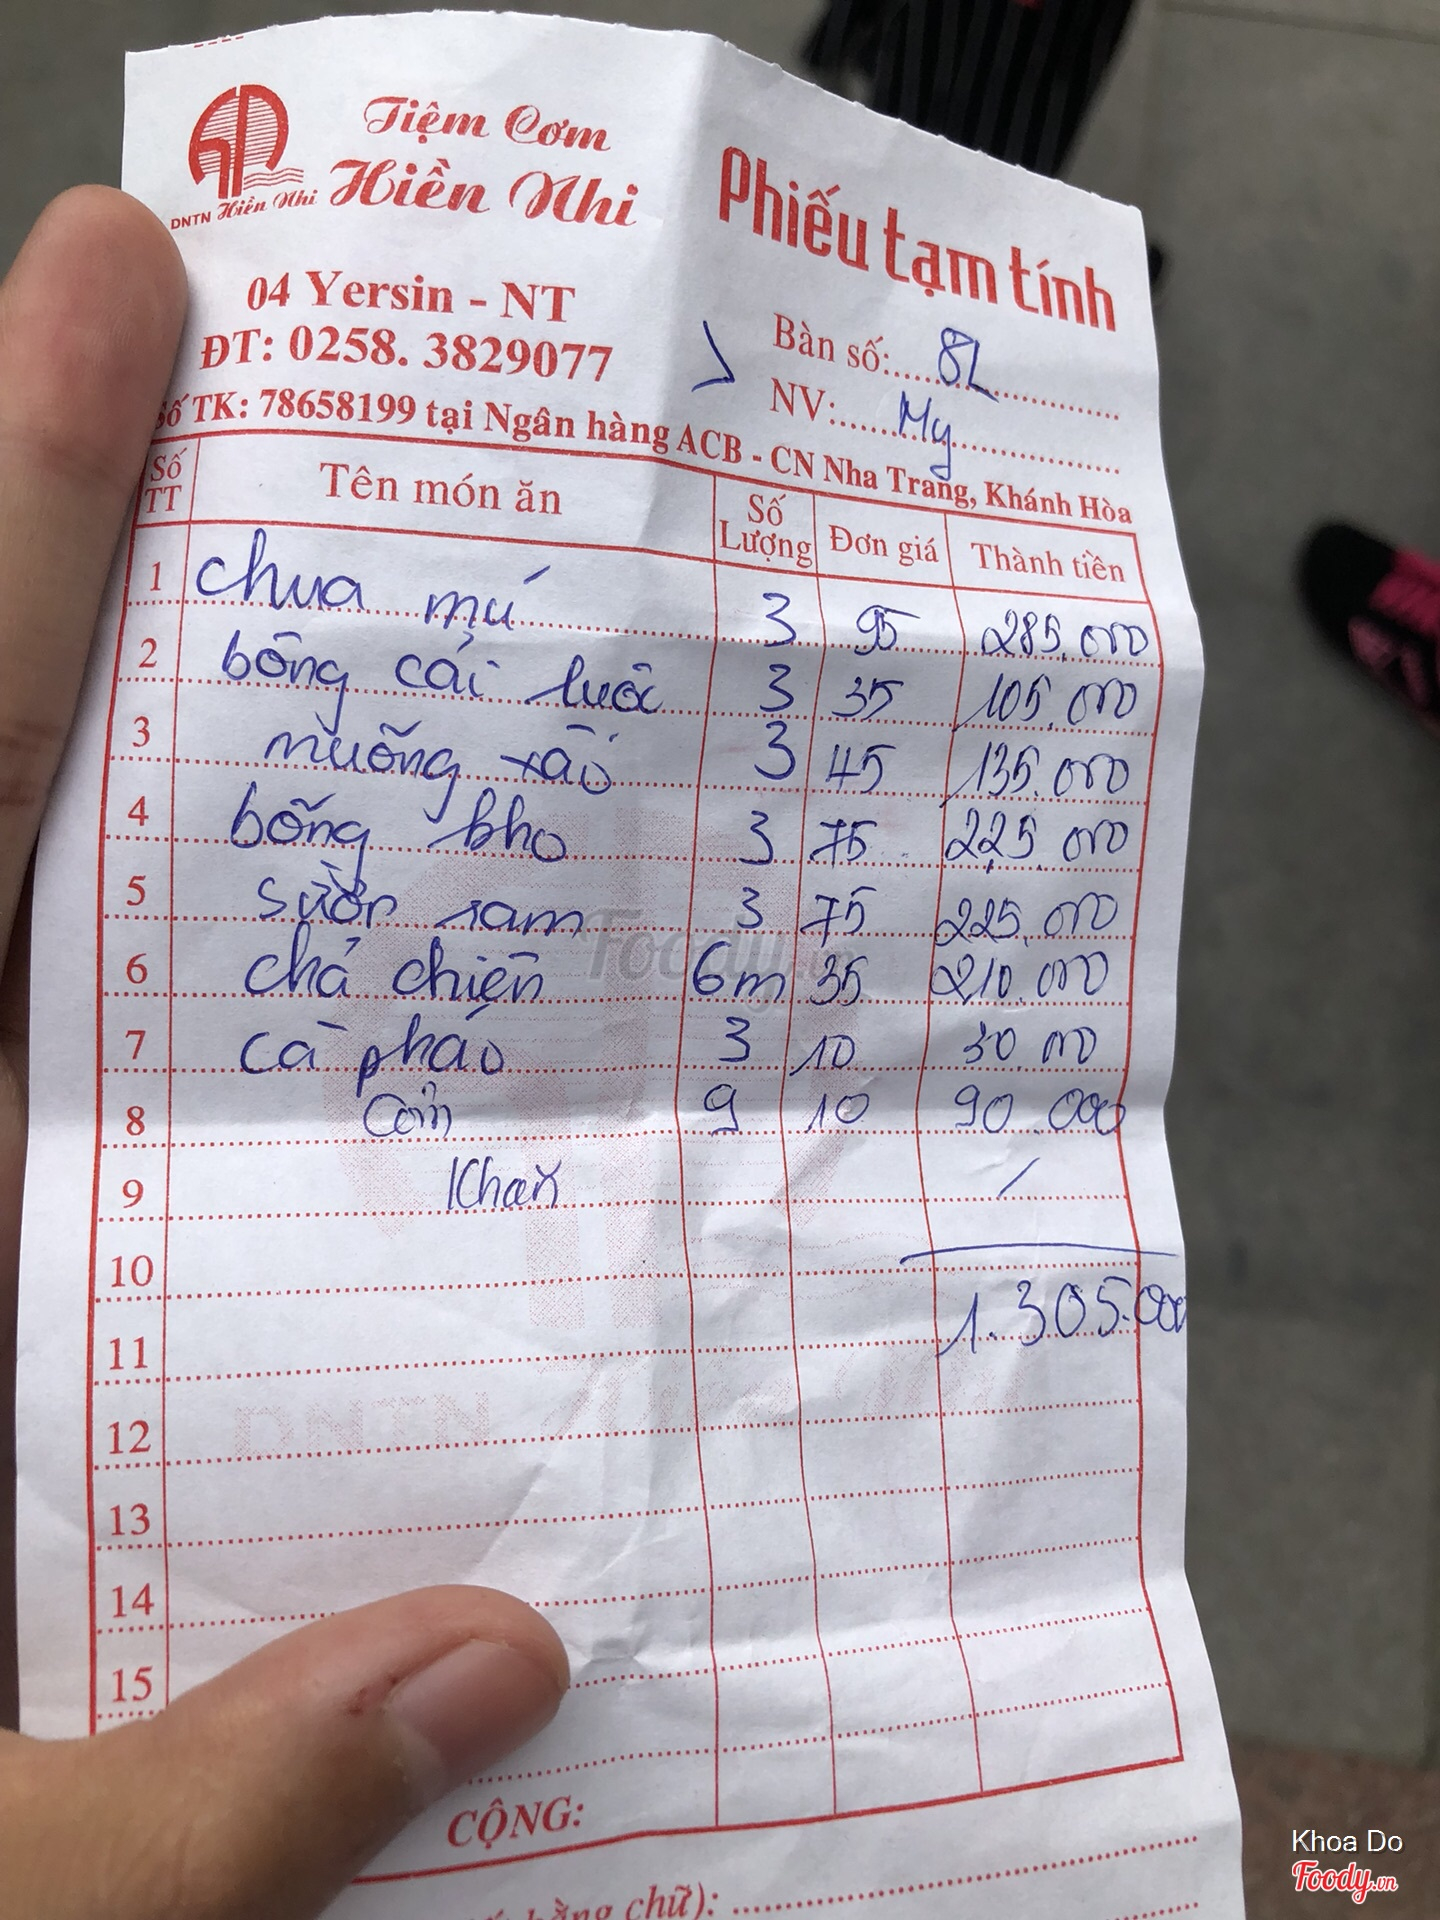 Tiệm Cơm
Hiền Nhi
DNTN Hiền Nhi
04 Yersin - NT
ĐT: 0258. 3829077
Phiếu tạm tính
Bàn số: 8L
NV: My
Số TK: 78658199 tại Ngân hàng ACB - CN Nha Trang, Khánh Hòa
Số TT Tên món ăn Số Lượng Đơn giá Thành tiền
1 chua mú 3 95 285.000
2 bông cải luộc 3 35 105.000
3 muống xào 3 45 135.000
4 bống kho 3 75 225.000
5 sườn ram 3 75 225.000
6 chả chiên 6m 35 210.000
7 cà pháo 3 10 30 000
8 Cơm 9 10 90.000
9 Khăn /
10
11 1.305.000
12
13
14
15
CỘNG:
bằng chữ):
Foody.vn
DNTN
Khoa Do
Foody.vn